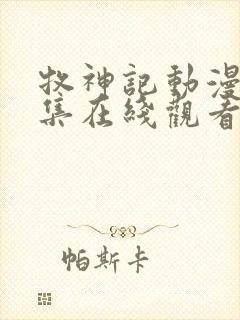 牧神記動漫
集在綫觀看
帕斯卡